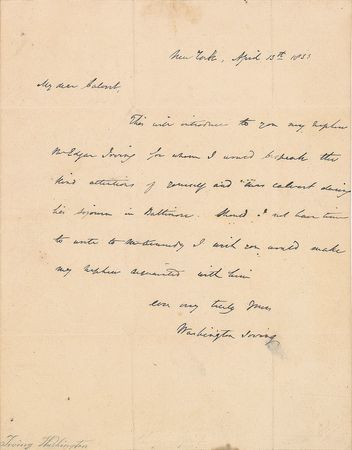 New York, April 13th 1833
My dear Calvert,
This will introduce to you my nephew
Mr Edgar Irving for whom I would bespeak the
kind attentions of yourself and Mrs Calvert during
his sojourn in Baltimore. Should I not have time
to write to Mr Kennedy I wish you would make
my nephew acquainted with him
very truly yours
Washington Irving
Irving Washington